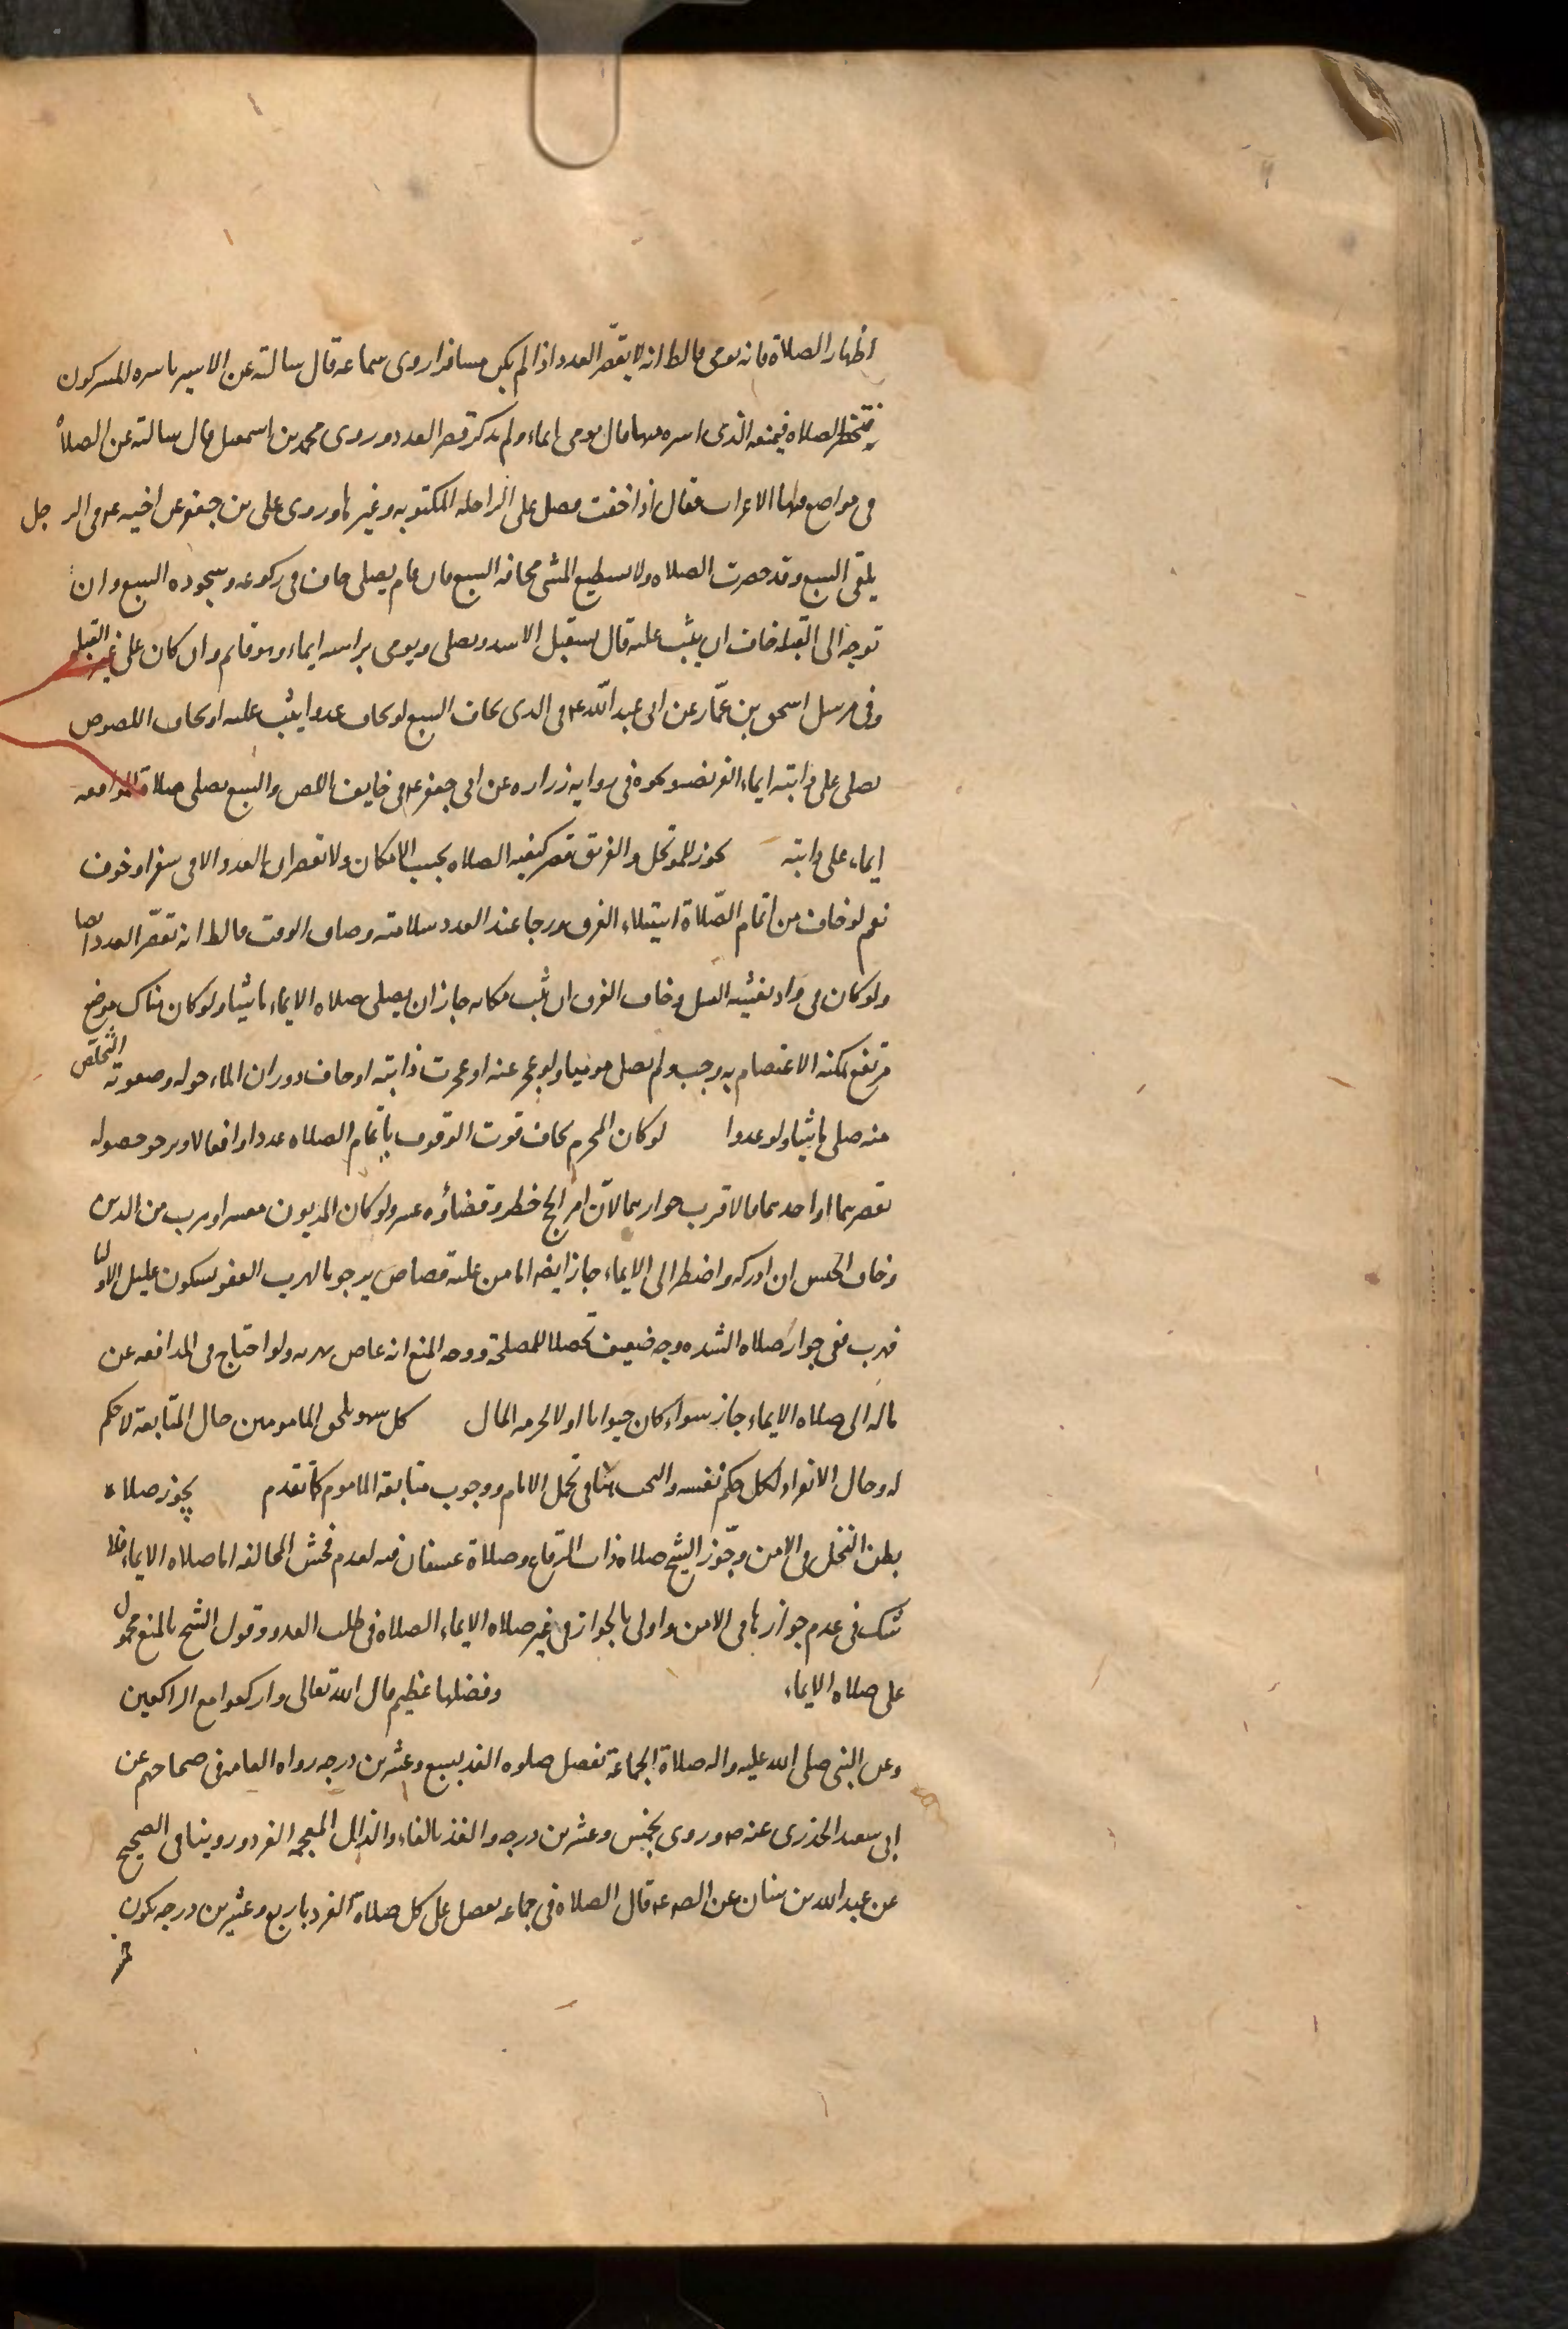 اظهار الصلاة فانه يومى فالظ انه لا يقصّر العدد اذا لم يكن مسافرا روى سماعه قال سالته عن الاسير ياسره المشركون
فتحضر الصلاه فيمنعه الذى اسره منها قال يومى ايماء ولم يذكر قصر العدد وروى محمد بن اسمعيل قال سالته عن الصلاة
فى مواضع فيها الاعراب فقال اذا خفت فصل على الراحله المكتوبه وغيرها وروى على بن جعفر عن اخيه ع فى الرجل
يلقى السبع وقد حضرت الصلاه ولا يستطيع المشى مخافه السبع فان قام يصلى خاف فى ركوعه وسجوده السبع وان
توجه الى القبله خاف ان يثب عليه قال يستقبل الاسد ويصلى ويومى براسه ايماء وهو قايم وان كان على غير القبله
وفى مرسل اسحق بن عمّار عن ابى عبد اللّه ع فى الذى يخاف السبع او يخاف عدوا يثب عليه او يخاف اللصوص
يصلى على دابته ايماء الفريضه ونحوه فى روايه زراره عن ابى جعفر ع فى خايف اللص والسبع يصلى صلاة المواقفه
ايماء على دابته يجوز للموتحل والغريق قصر كيفيه الصلاه بحسب الامكان ولا يقصران العدد الا فى سفر او خوف
نعم لو خاف من اتمام الصّلاة استيلاء الغرق ورجا عند العدد سلامته وضاق الوقت فالظ انه يقصّر العدد ايضا
ولو كان فى واد يغشيه السيل وخاف الغرق ان ثبت مكانه جاز ان يصلى صلاه الايماء ماشيا ولو كان هناك موضع
مرتفع يمكنه الاعتصام به وجب ولم يصل موميا ولو عجز عنه او عجزت دابته او خاف دوران الماء حوله وصعوبة التخلّص
منه صلى ماشيا ولو عدوا لو كان المحرم يخاف فوت الوقوف باتمام الصلاه عددا او افعالا ويرجو حصوله
بقصرهما او احدهما فالاقرب جوازهما لانّ امر الحج خطر وقضاؤه عسر ولو كان المديون معسرا وهرب من الدين
وخاف الحبس ان ادركه واضطر الى الايماء جاز ايضا اما من عليه قصاص يرجو بالهرب العفو بسكون غليل الاوليا
فهرب ففى جواز صلاه الشده وجه ضعيف تحصيلا للمصلحة ووجه المنع انه عاص بهربه ولو احتاج فى المدافعه عن
ماله الى صلاه الايماء جاز سواء كان حيوانا او لا لحرمه المال كل سهو يلحق المامومين حال المتابعة لا حكم
له وحال الانفراد لكل حكم نفسه والبحث هنا فى تحمل الامام ووجوب متابعة الماموم كما تقدم يجوز صلاه
بطن النخل فى الامن وجّوز الشيخ صلاه ذات الرقاع وصلاة عسفان فيه لعدم فحش المخالفه اما صلاه الايماء فلا
شك فى عدم جوازها فى الامن واولى بالجواز فى غير صلاه الايماء الصلاه فى طلب العدو وقول الشيخ بالمنع محمول
على صلاه الايماء وفضلها عظيم قال الله تعالى واركعوا مع الراكعين
وعن النبى صلى الله عليه واله صلاة الجماعة تفضل صلوه الفذ بسبع وعشرين درجه رواه العامه فى صحاحهم عن
ابى سعيد الخدرى عنه ص وروى بخمس وعشرين درجه والفذ بالفاء والذال المعجمه الفرد وروينا فى الصحيح
عن عبد الله بن سنان عن الص ع قال الصلاه فى جماعه تفضل على كل صلاة الفرد باربع وعشرين درجه يكون